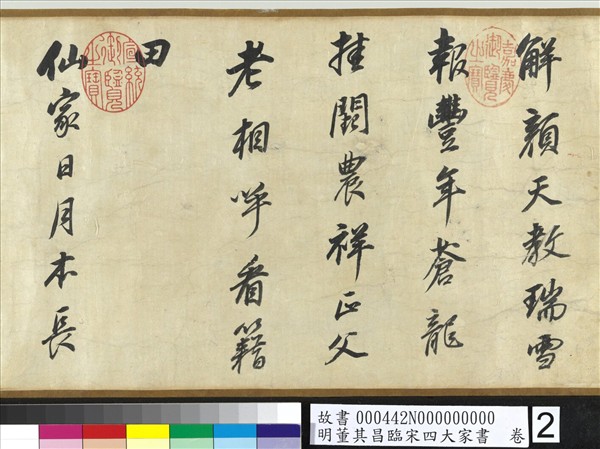 解顏天教瑞雪
報豐年蒼龍
挂闕農祥正父
老相呼看籍
田
仙家日月本長
嘉慶御覽之寶
宣統御覽之寶
故書 000442N000000000
明董其昌臨宋四大家書 卷
2